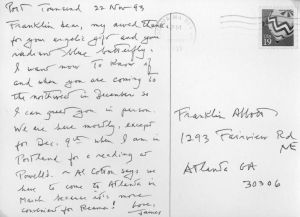 Port Townsend 22 Nov 93
Franklin dear, my awed thanks
for your angelic gift and your
radiant blue butterfly.
I want now to know if
and when you are coming to
the northwest in December so
I can greet you in person.
We are here mostly, except
for Dec. 9th when I am in
Portland for a reading at
Powell's. ~ Al Cotson says we
have to come to Atlanta in
March because it's more
convenient for
Love,
James
19
Franklin Abbott
1293 Fairview Rd
NE
Atlanta GA
30306